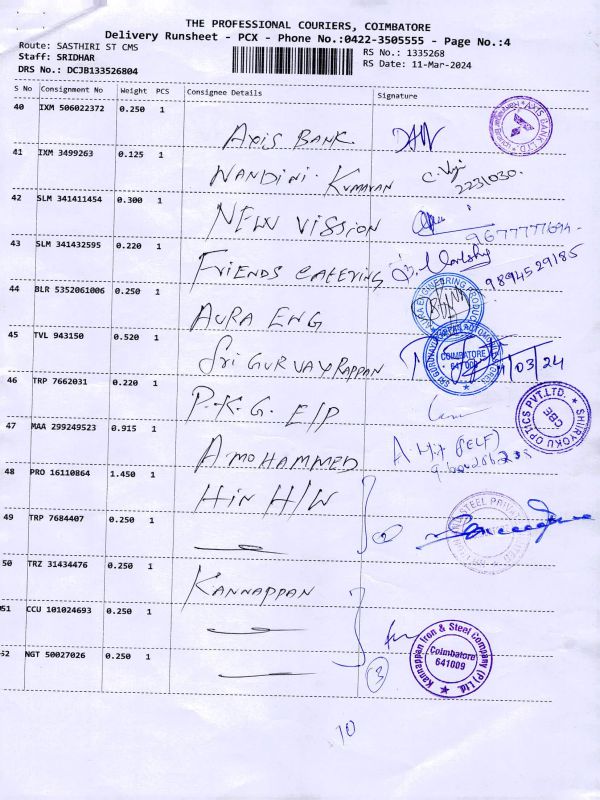 THE PROFESSIONAL COURIERS, COIMBATORE
Delivery Runsheet - PCX - Phone No.:0422-3505555 - Page No.:4
Route: SASTHIRI ST CMS
RS No.: 1335268
Staff: SRIDHAR
RS Date: 11-Mar-2024
DRS No.: DCJB133526804
S No Consignment No Weight PCS Consignee Details Signature
40 IXM 506022372 0.250 1
AXIS BANK
AXIS BANK LTD
41 IXM 3499263 0.125 1
NANDINI. KUMARAN
2231030.
42 SLM 341411454 0.300 1
NEW VISSION
9677777694
43 SLM 341432595 0.220 1
FRIENDS CATERING
9894529185
44 BLR 5352061006 0.250 1
AURA ENG
45 TVL 943150 0.520 1
SRI GURUVAYRAPPAN
COIMBATORE
641009
/03/24
46 TRP 7662031 0.220 1
P.K.G. E/P
SHIRYOKU OPTICS PVT.LTD.
CBE
47 MAA 299249523 0.915 1
A.MOHAMMED
(SELF)
48 PRO 16110864 1.450 1
HIN H/W
49 TRP 7684407 0.250 1
2
50 TRZ 31434476 0.250 1
KANNAPPAN
51 CCU 101024693 0.250 1
Kannappan Iron & Steel Company (P) Ltd.
Coimbatore
641009
52 NGT 50027026 0.250 1
3
10